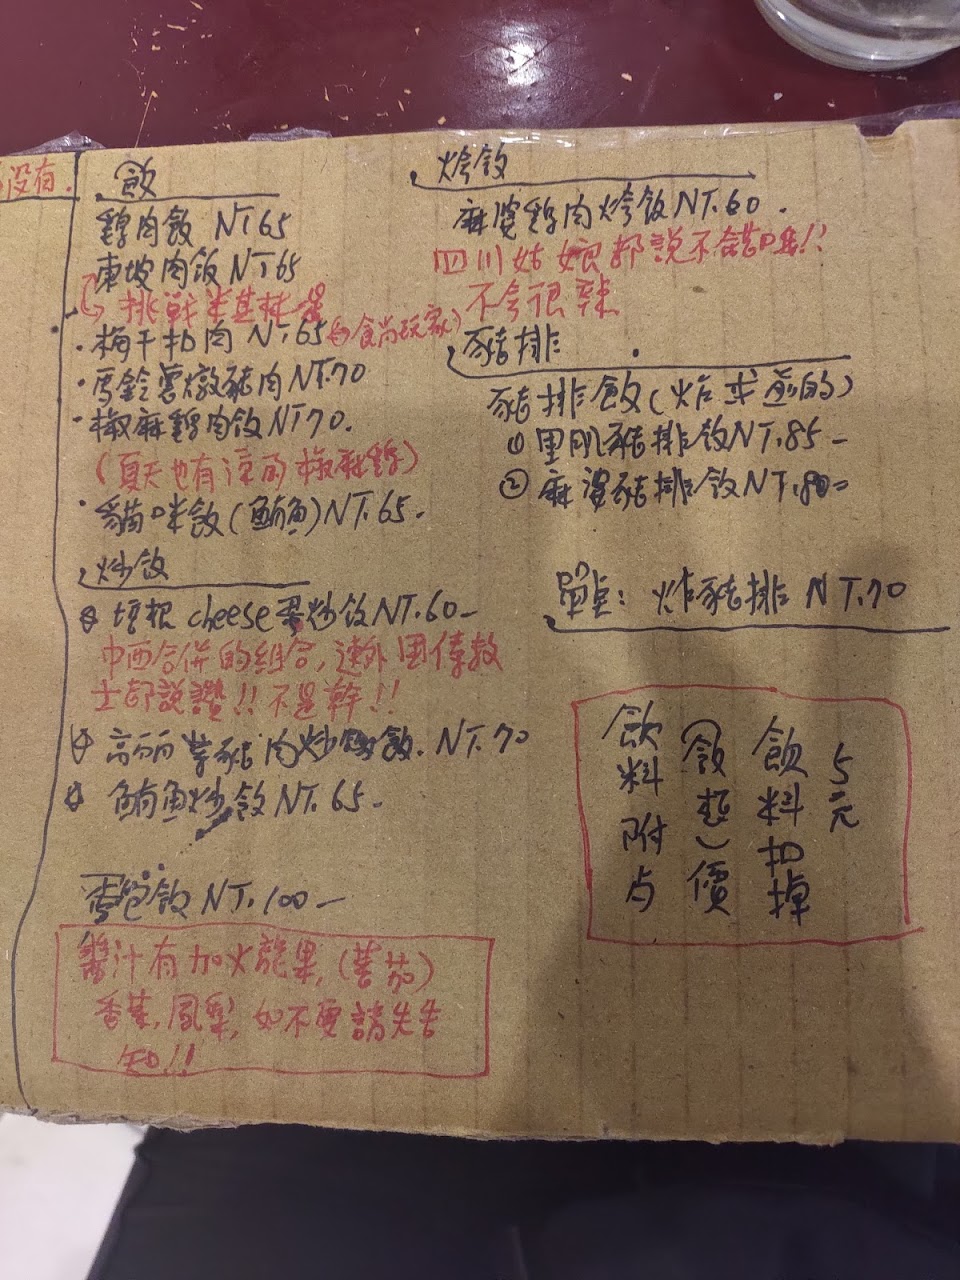 没有.
飯
雞肉飯 NT.65
東坡肉飯 NT.65
挑戰米其林
·梅干扣肉 NT.65 (食尚玩家)
·馬鈴薯燉豬肉 NT.70
·椒麻雞肉飯 NT.70.
(夏天也有涼的椒麻雞)
·貓咪飯(鮪魚) NT.65-
炒飯
培根cheese蛋炒飯 NT.60-
中西合併的組合,連外国傳教
士都說讚!!不是幹!!
高丽菜豬肉炒飯. NT.70
鮪魚炒飯 NT.65-
蛋包飯 NT.100-
醬汁有加火龍果,(蕃茄)
香蕉,鳳梨,如不要請先告
知!!
燴飯
麻婆雞肉燴飯 NT.60.
四川姑娘都說不錯吃!!
不会很辣
豬排
豬排飯(炸或煎的)
① 里肌豬排飯 NT.85-
② 麻婆豬排飯 NT.80-
單点: 炸豬排 NT.70
飲料附与
(飯麵)價
飲料扣掉
5元